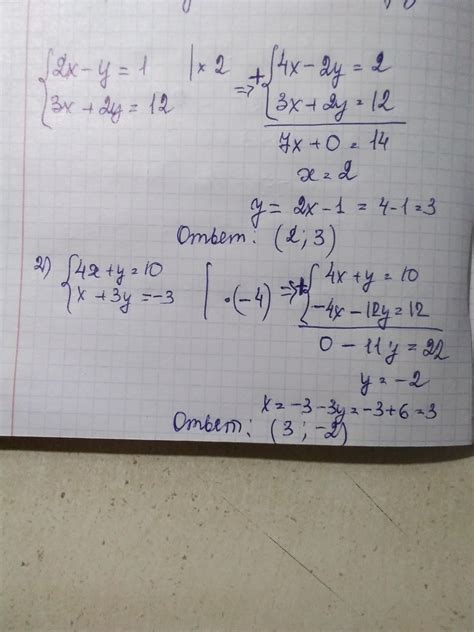 {2x - y = 1 | × 2 ⇒ + {4x - 2y = 2
{3x + 2y = 12 {3x + 2y = 12
7x + 0 = 14
x = 2
y = 2x - 1 = 4 - 1 = 3
Ответ: (2; 3)
2) {4x + y = 10 ⇒ + {4x + y = 10
{x + 3y = -3 | · (-4) {-4x - 12y = 12
0 - 11y = 22
y = -2
x = -3 - 3y = -3 + 6 = 3
Ответ: (3; -2)